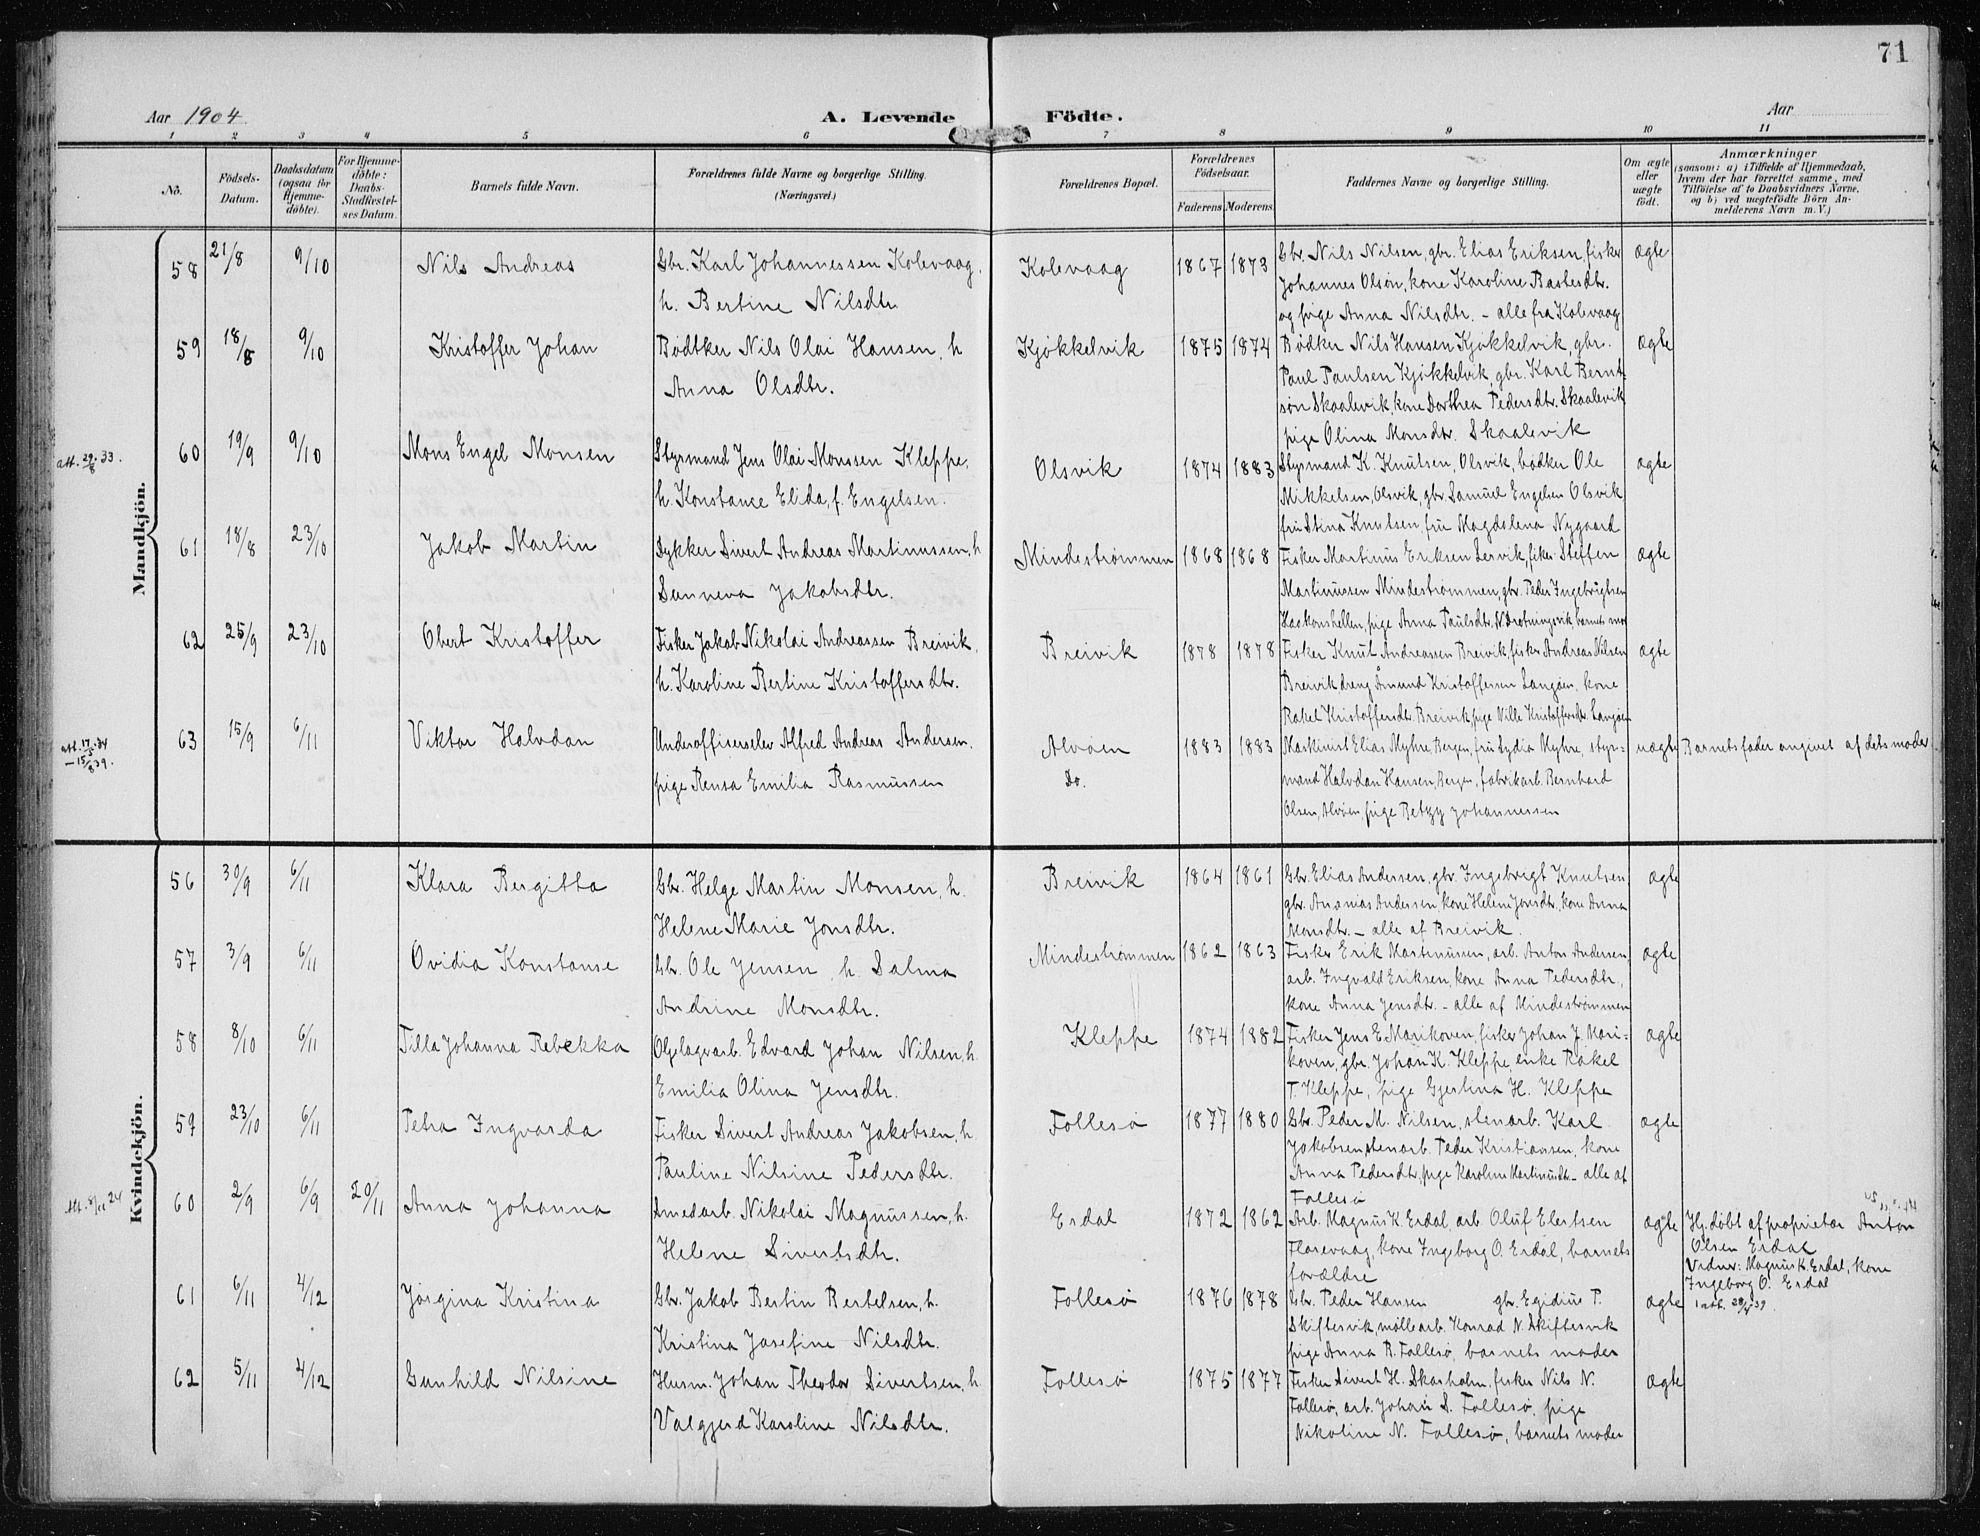 71
Aar 1904.
A. Levende Födte.
Aar
1 2 3 4 5 6 7 8 9 10 11
No.
Födsels-Datum.
Daabsdatum (ogsaa for Hjemme-döbte).
For Hjemme-döbte: Daabs-Stadfæstel-ses Datum.
Barnets fulde Navn.
Forældrenes fulde Navne og borgerlige Stilling.
(Næringsvei.)
Forældrenes Bopæl.
Forældrenes Födselsaar.
Faderens. Moderens.
Faddernes Navne og borgerlige Stilling.
Om ægte eller uægte födt.
Anmærkninger
(saasom: a) i Tilfælde af Hjemmedaab,
hvem der har forrettet samme, med
Tilföielse af to Daabsvidners Navne,
og b) ved uægtefödte Börn An-
melderens Navn m. V.)
Mandkjön.
58 21/8 9/10 Nils Andreas
Gbr. Karl Johannessen Kolevaag,
h. Bertine Nilsdtr.
Kolevaag 1867 1873
Gbr. Nils Nilsen, gbr. Elias Eriksen, fisker
Johannes Olson, kone Karoline Bastesdtr.
og pige Anna Nilsdtr. - alle fra Kolevaag
ægte
59 18/8 9/10 Kristoffer Johan
Bødtker Nils Olai Hansen, h
Anna Olsdtr.
Kjøkkelvik 1875 1874
Bødker Nils Hansen Kjøkkelvik, gbr.
Paul Paulsen Kjøkkelvik, gbr. Karl Bernt-
søn Skaalevik, kone Dorthea Pedersdtr. Skaalevik
pige Olina Monsdtr. Skaalevik
ægte
att. 29/8 33.
60 19/9 9/10 Mons Engel Monsen
Styrmand Jens Olai Monssen Kleppe,
h. Konstance Elida, f. Engelsen.
Olsvik 1874 1883
Styrmand K. Knutsen, Olsvik, bødker Ole
Mikkelsen, Olsvik, gbr. Samuel Engelsen Olsvik
fru Stina Knutsen, fru Magdalena Nygaard
ægte
61 18/8 23/10 Jakob Martin
Dykker Sivert Andreas Martinussen, h
Sunneva Jakobsdtr.
Mindestrømmen 1868 1868
Fisker Martinus Eriksen Lervik, fisker Steffen
Martinussen Mindestrømmen, gbr. Peder Ingebrigtsen
Haakonshellen, pige Anna Paulsdtr, N. Drotningsvik, barnets mor
ægte
62 25/9 23/10 Obert Kristoffer
Fisker Jakob Nikolai Andreassen Breivik,
h. Karoline Bertine Kristoffersdtr.
Breivik 1878 1878
Fisker Knut Andreassen Breivik, fisker Andreas Nilsen
Breivik dreng Åmund Kristoffersen Langøen, kone
Rakel Kristoffersdtr. Breivik, pige Nille Kristoffersdtr. Langøen
ægte
att. 17/5 34
- 15/8 39.
63 15/9 6/11 Viktor Halvdan
Underoffiserselev Alfred Andreas Andersen.
pige Rensa Emilia Rasmussen
Alvøen 1883 1883
Do.
Maskinist Elias Myhre, Bergen, fru Lydia Myhre, styr-
mand Halvdan Hansen, Bergen, fabrikarb. Bernhard
Olsen, Alvøen, pige Betzy Johannessen
uægte Barnets fader angivet af dets moder
Kvindekjön.
56 30/9 6/11 Klara Bergitta
Gbr. Helge Martin Monsen, h.
Helene Marie Jonsdtr.
Breivik 1864 1861
Gbr. Elias Andersen, gbr. Ingebrigt Knutsen
gbr. Ananias Andersen, kone Helene Jonsdtr., kone Anna
Monsdtr. - alle af Breivik.
ægte
57 3/9 6/11 Ovidia Konstanse
Gbr. Ole Jensen, h. Salma
Andrine Monsdtr.
Mindestrømmen 1862 1863
Fisker Erik Martinussen, arb. Anton Andersen,
arb. Ingvald Eriksen, kone Anna Pedersdtr.,
kone Anna Jensdtr. - alle af Mindestrømmen
ægte
58 8/10 6/11 Tilla Johanna Rebekka
Oljelagerarb. Edvard Johan Nilsen, h.
Emilia Olina Jensdtr.
Kleppe 1874 1882
Fisker Jens E. Marikoven, fisker Johan J. Mari-
koven, gbr. Johan K. Kleppe, enke Rakel
T. Kleppe, pige Gjertina H. Kleppe
ægte
59 23/10 6/11 Petra Ingvarda
Fisker Sivert Andreas Jakobsen, h.
Pauline Nilsine Pedersdtr.
Follesø 1877 1880
Gbr. Peder M. Nilsen, stenarb. Karl
Jakobsen, stenarb. Peder Kristiansen, kone
Anna Pedersdtr, pige Karoline Martinusdtr. - alle af
Follesø
ægte
Att. 5/11 24
60 2/9 6/9 20/11 Anna Johanna
Smedarb. Nikolai Magnussen, h.
Helene Sivertsdtr.
Erdal 1872 1862
Arb. Magnus K. Erdal, arb. Oluf Elertsen
Florevaag, kone Ingeborg O. Erdal, barnets
forældre
ægte
Hj. døbt af proprietær Anton
Olsen Erdal
Vidner: Magnus K. Erdal, kone
Ingeborg O. Erdal
61 6/11 4/12 Jørgina Kristina
Gbr. Jakob Bertin Bertelsen, h.
Kristina Josefine Nilsdtr.
Follesø 1876 1878
Gbr. Peder Hansen gbr. Egidius P.
Skiftesvik, møllearb. Konrad N. Skiftesvik
pige Anna B. Follesø, barnets moder
ægte
1 att. 28/4 39.
62 5/11 4/12 Gunhild Nilsine
Husm. Johan Theodor Sivertsen, h.
Valgjerd Karoline Nilsdtr.
Follesø 1875 1877
Fisker Sivert H. Skarholm, fisker Nils N.
Follesø, arb. Johan S. Follesø, pige
Nikoline N. Follesø, barnets moder
ægte